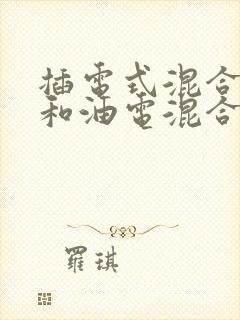 插電式混合
和油電混合
羅琪